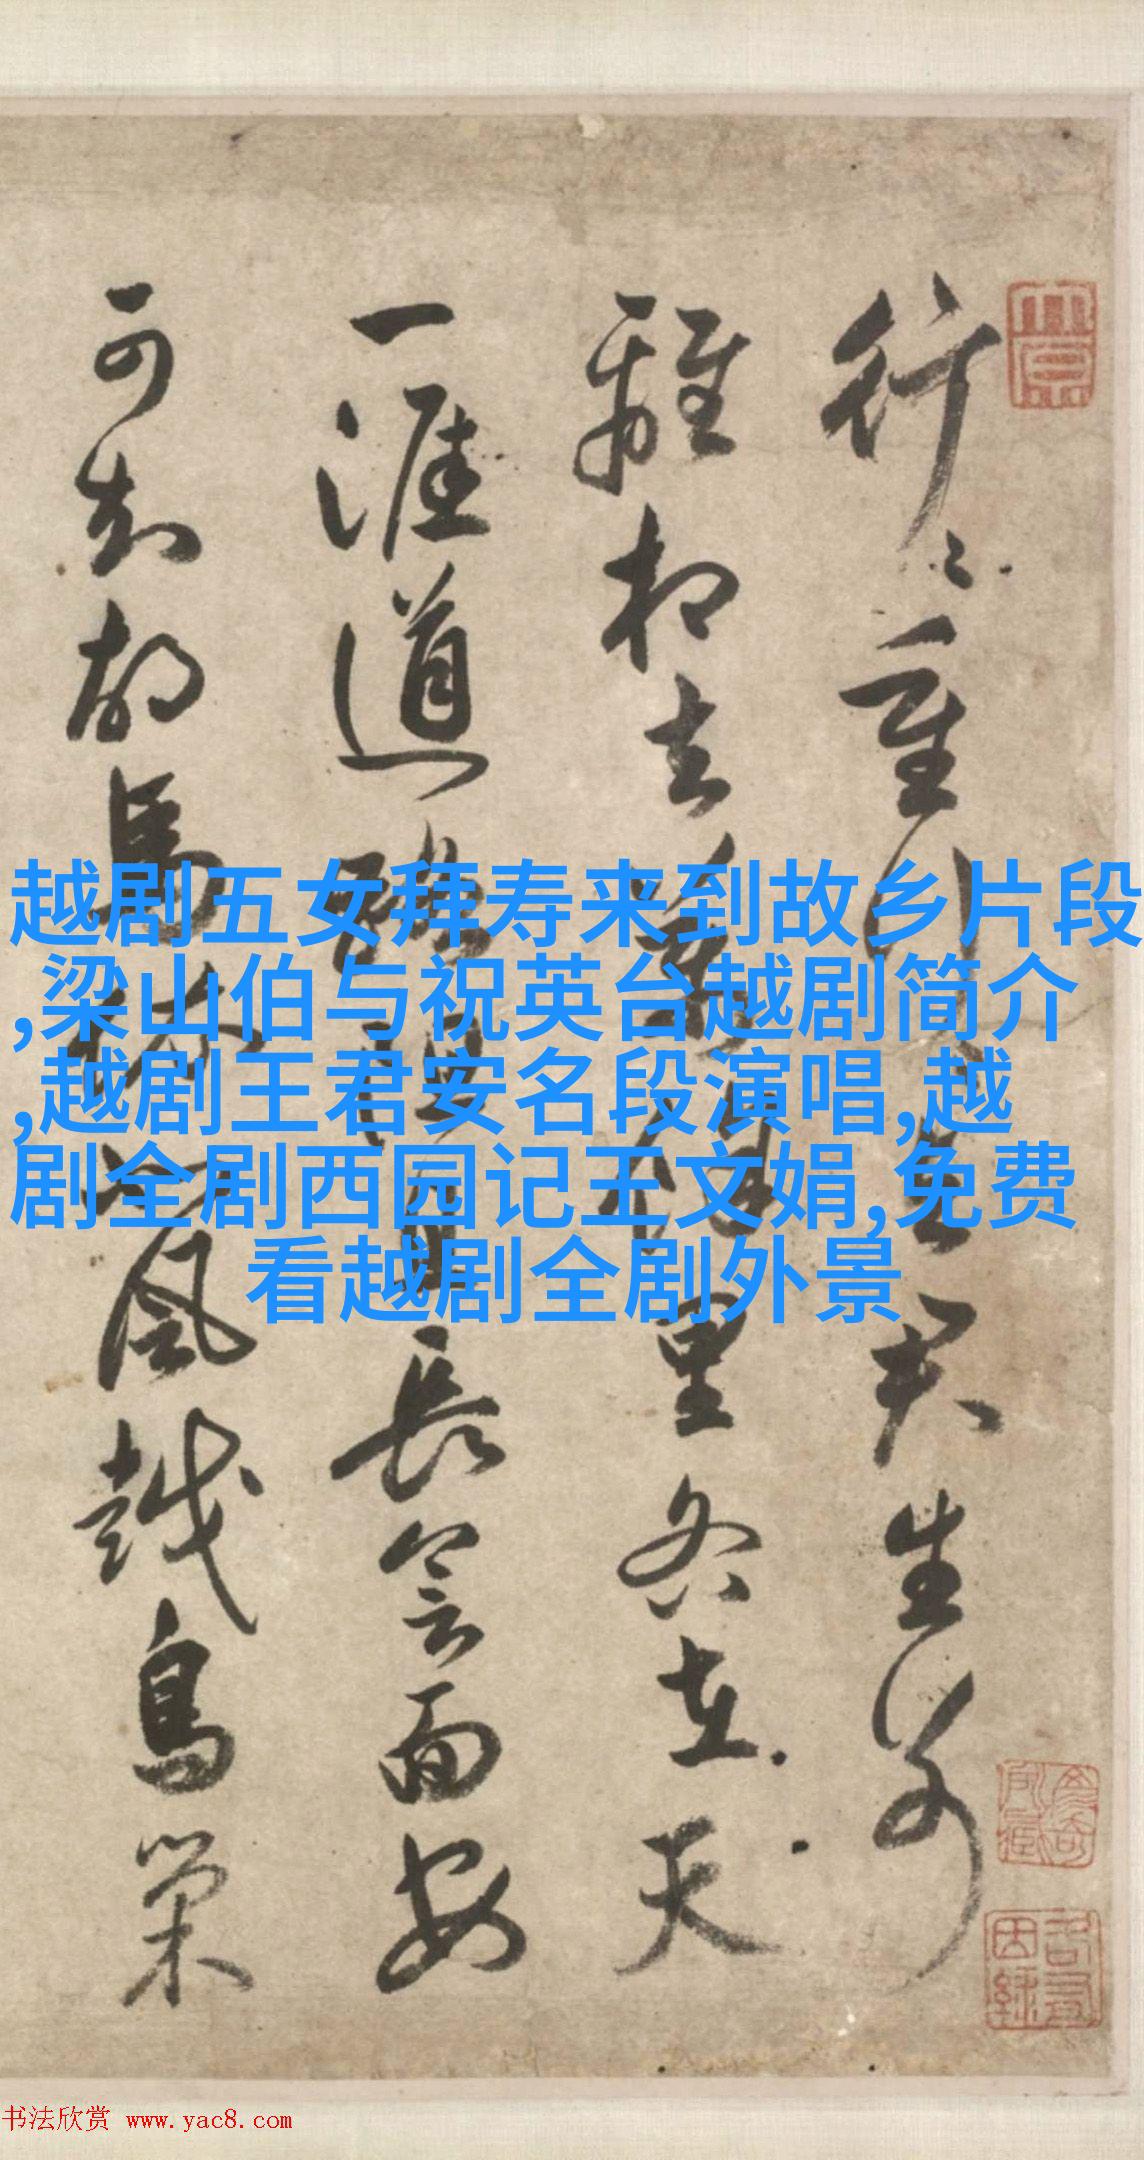 行〻重行〻与君生别
離相去萬餘里各在天
一涯道路阻且長會面安
可知胡馬依北風越鳥巢
越剧五女拜寿来到故乡片段
,梁山伯与祝英台越剧简介
,越剧王君安名段演唱,越
剧全剧西园记王文娟,免费
看越剧全剧外景
书法欣赏 www.yac8.com